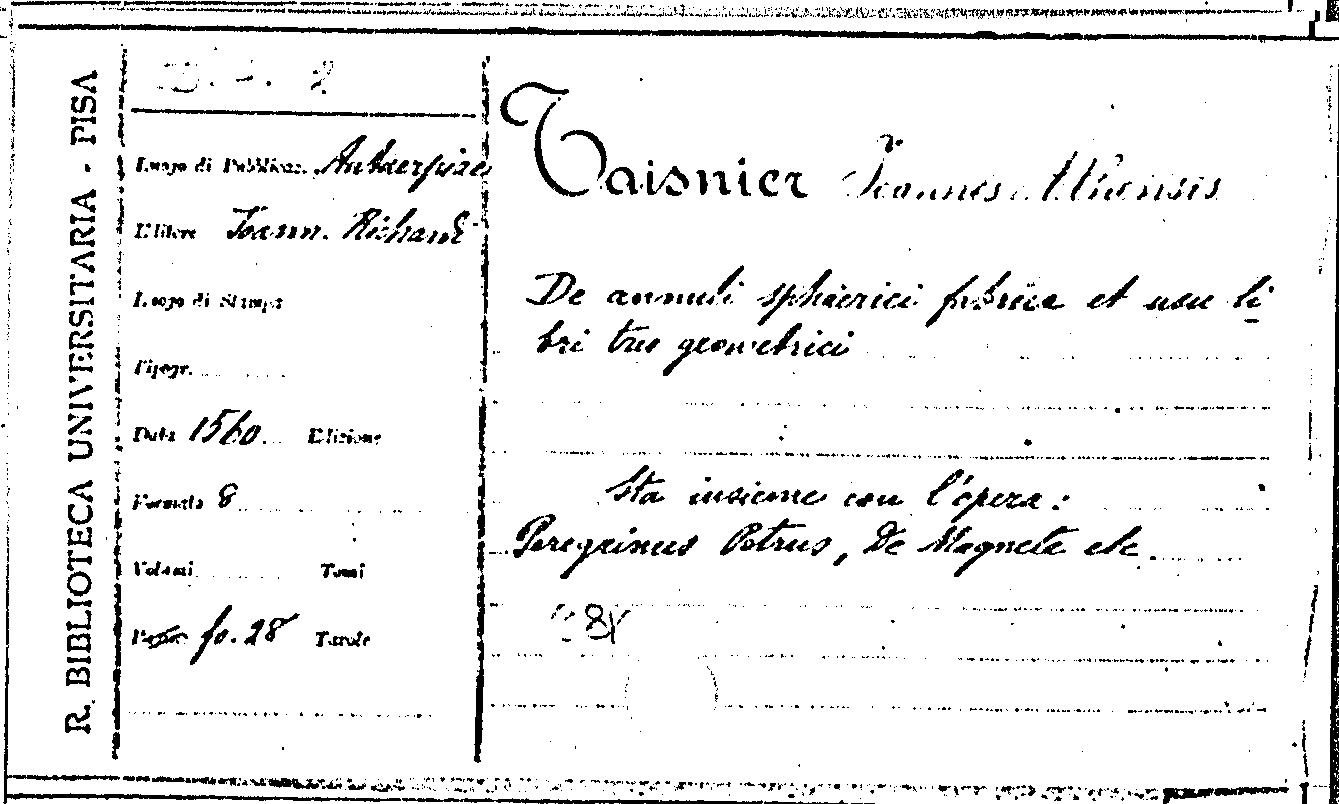 R. BIBLIOTECA UNIVERSITARIA - PISA
Luogo di Pubblicaz. Antverpiae
Editore Joann. Richard
Luogo di Stampa
Tipogr.
Data 1560 Edizione
Formato 8
Volumi Tomi
Pagine fo. 28 Tavole
Taisnier Joannes Athiensis
De annuli sphaerici fabrica et usu li-
bri tres geometrici
Sta insieme con l'opera:
Peregrinus Petrus, De Magnete etc.